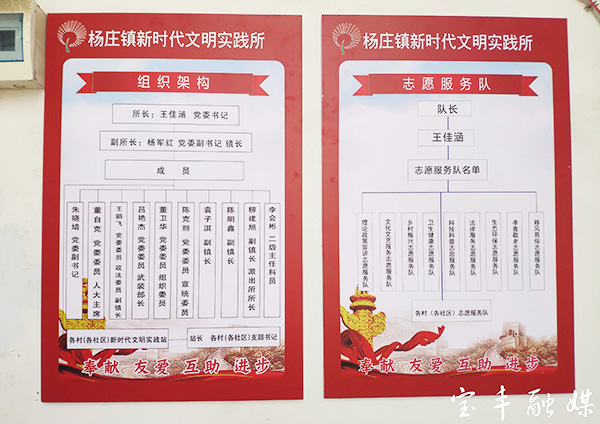 杨庄镇新时代文明实践所
组织架构
所长：王佳涵 党委书记
副所长：杨军红 党委副书记 镇长
成 员
朱晓培 党委副书记
董自克 党委委员 人大主席
王鹏飞 党委委员 政法委员 副镇长
吕艳杰 党委委员 武装部长
董卫华 党委委员 组织委员
陈克丽 党委委员 宣统委员
袁子淇 副镇长
陈明鑫 副镇长
柳建旭 副镇长 派出所所长
李会彬 二级主任科员
各村(各社区)新时代文明实践站
站长 各村(各社区)支部书记
奉献 友爱 互助 进步
杨庄镇新时代文明实践所
志愿服务队
队长
王佳涵
志愿服务队名单
理论政策宣讲志愿服务队
文化文艺服务志愿服务队
乡村振兴志愿服务队
卫生健康志愿服务队
科技科普志愿服务队
法律服务志愿服务队
生态环保志愿服务队
孝善敬老志愿服务队
移风易俗志愿服务队
各村(各社区)志愿服务队
奉献 友爱 互助 进步
宝丰融媒